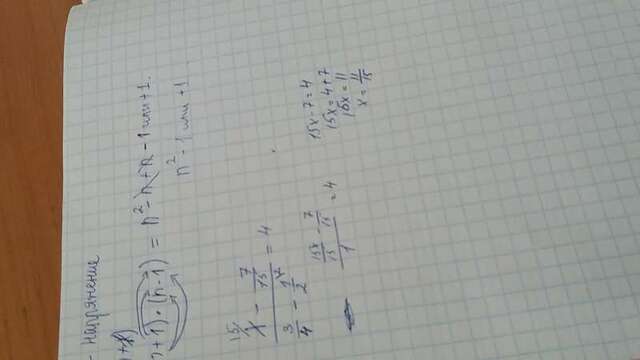 - напряжение
n+1)
n+1)·(n-1) = n² - n + n - 1 или +1.
n² - 1 или +1
15/
x - 7/15
3/4 - 1/2 = 4
15x/15 - 7/15
1 = 4
15x-7=4
15x=4+7
15x=11
x=11/15